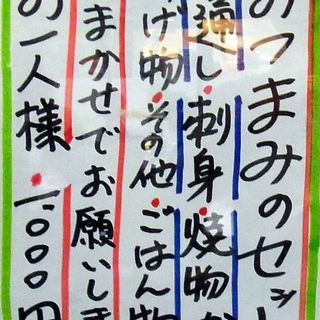 のつまみのセッ
通し・刺身・焼物
げ物・その他・ごはん物
まかせでお願いしま
の一人様・一、〇〇〇円